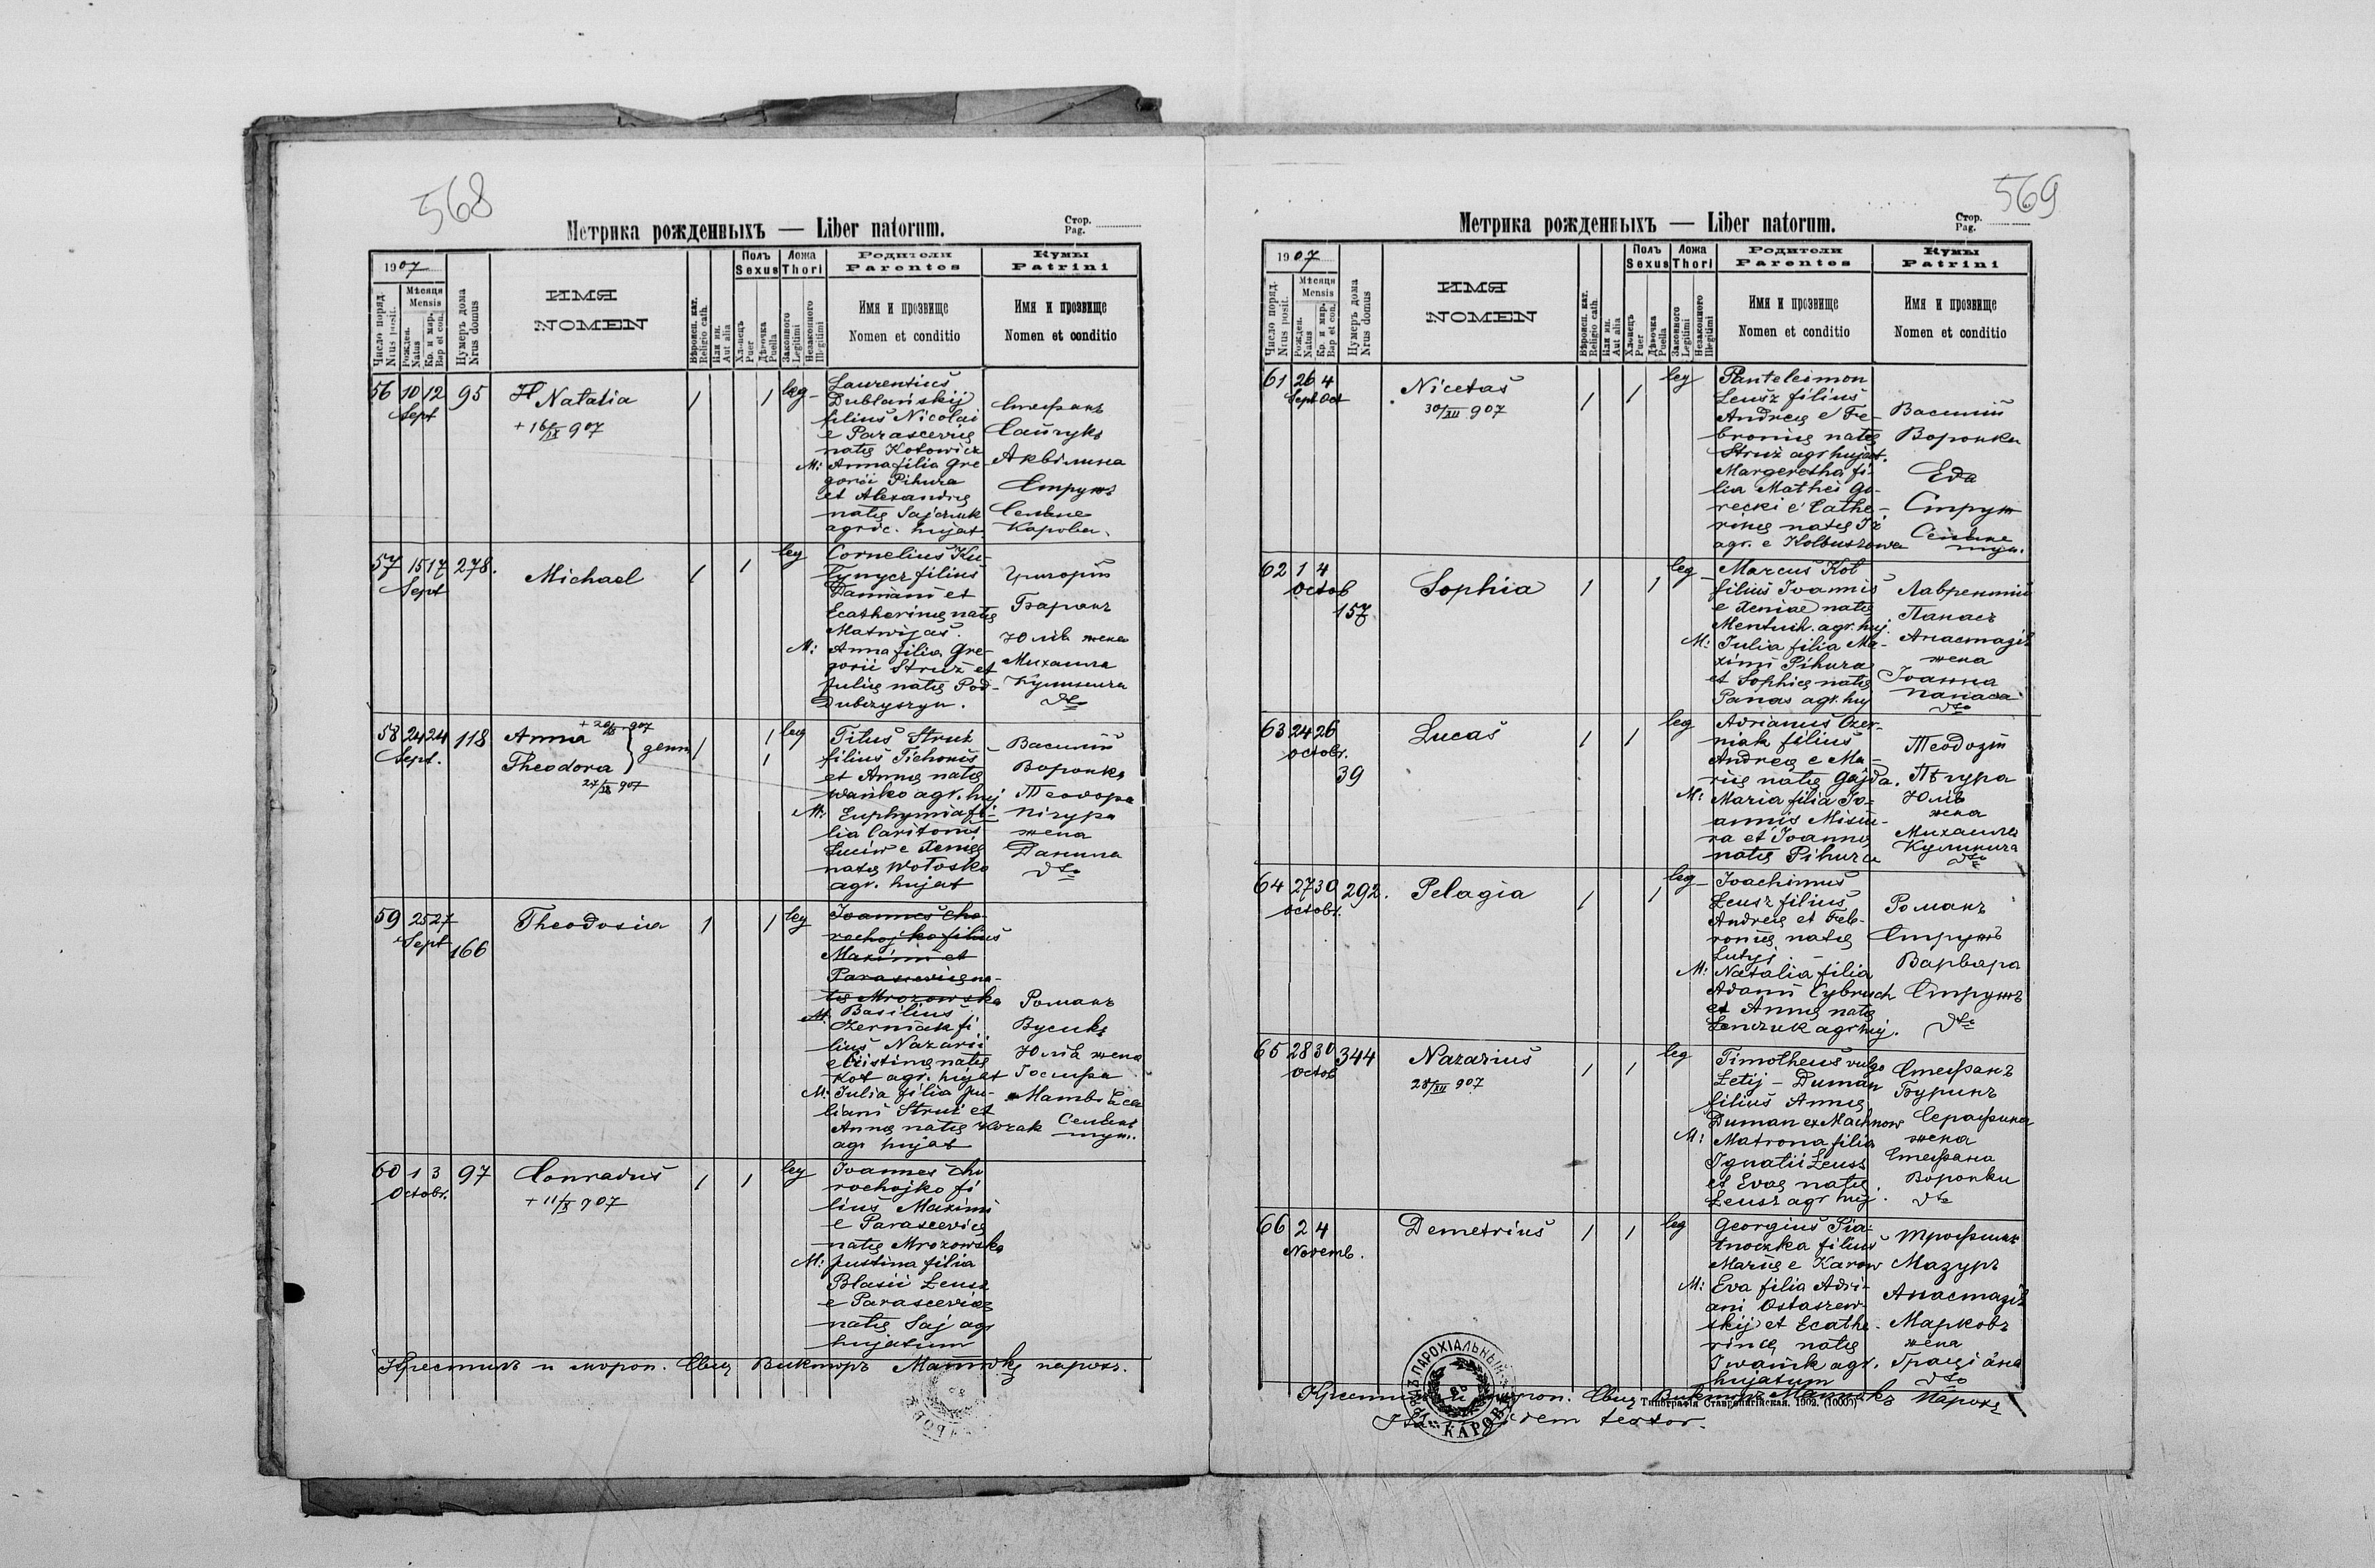 568
Метрика рожденныхъ — Liber natorum.
Стор.
Pag.
1907
Число поряд.
Nrus posit.
Мѣсяця
Mensis
Рожден.
Natus
Кр. и мир.
Bap et con.
Нумеръ дома
Nrus domus
ИМЯ
NOMEN
Вѣроисп. кат.
Religio cath.
Или ин.
Aut alia
Полъ
Sexus
Хлопецъ
Puer
Дѣвочка
Puella
Ложа
Thori
Законного
Legitimi
Незаконного
Illegitimi
Родители
Parentes
Имя и прозвище
Nomen et conditio
Кумы
Patrini
Имя и прозвище
Nomen et conditio
56 10 12 95
Sept
Natalia
+ 16/IX 907
1 1 leg
Laurentius
Dublańskij
filius Nicolai
e Parascevię
natę Kotowicz
M: Anna filia Gre
gorii Pihura
et Alexandrę
natę Sajczuk
agric. hujat.
Стефанъ
Сайчукъ
Аквілина
Стружъ
Селяне
Карова.
57 15 17 278.
Sept
Michael
1 1 leg
Cornelius Ku-
lynycz filius
Damiani et
Ecatherinę natę
Matwijas.
M: Anna filia Gre-
gorii Struż et
Julię natę Pod-
Dubczyszyn.
Григорій
Баранъ
Юлія жена
Михаила
Кулинича
dto
58 24 24 118
Sept.
Anna + 20/X 907
Theodora
27/IX 907
gem
1 1 leg
1
Titus Struż
filius Tichonis
et Annę natę
Wańko agr. huj
M: Euphymia fi-
lia Caritonis
Łuciw e Xenię
natę Wołoska
agr. hujat
Василій
Воронка
Теодора
Пігура
жена
Данила
dto
59 25 27
Sept 166
Theodosia
1 1 leg
Ioannes Cho-
rochojko filius
Maximi et
Parascevię na-
tę Mrozowska
M. Basilius
Ozerniak fi
lius Nazarii
e Cristinę natę
Kot agr. hujat
M: Iulia filia Ju-
liani Struż et
Annę natę Kozak
agr hujat
Романъ
Вусикъ
Юлія жена
Іосифа
Селяне
тут.
60 1 3 97
Octobr.
Conradus
+ 11/X 907
1 1 leg
Ioannes Cho
rochojko fi
lius Maximi
e Parascevię
natę Mrozowska
M: Justina filia
Blasii Łeusz
e Parascevię
natę Saj agr
hujatum
Крестилъ и мѵроп. Свщ Викторъ парохъ.
569
Метрика рожденныхъ — Liber natorum.
Стор.
Pag.
1907
Число поряд.
Nrus posit.
Мѣсяця
Mensis
Рожден.
Natus
Кр. и мир.
Bap et con.
Нумеръ дома
Nrus domus
ИМЯ
NOMEN
Вѣроисп. кат.
Religio cath.
Или ин.
Aut alia
Полъ
Sexus
Хлопецъ
Puer
Дѣвочка
Puella
Ложа
Thori
Законного
Legitimi
Незаконного
Illegitimi
Родители
Parentes
Имя и прозвище
Nomen et conditio
Кумы
Patrini
Имя и прозвище
Nomen et conditio
61 26 4
Sept Oct
Nicetas
30/XII 907
1 1 leg
Panteleimon
Łeusz filius
Andreę e Fe-
bronię natę
Struż agr hujat.
Margeretha fi-
lia Mathei Go-
recki e Cathe-
rinę natę Iż
agr. e Kolbuszowa
Василій
Воронка
Ева
Струж
Селяне
тут.
62 1 4
Octob
157
Sophia
1 1 leg
Marcus Kot
filius Ioannis
e Xeniae natę
Mentuch. agr. huj.
M: Iulia filia Ma-
ximi Pihura
et Sophię natę
Panas agr. huj
Лаврентій
Панасъ
Анастазія
жена
Іоанна
Панаса
dto
63 24 26
octobr.
39
Lucas
1 1 leg
Adrianus Ozer-
niak filius
Andreę e Ma-
rię natę Gajda.
M: Maria filia Io-
annis Misiu-
ra et Ioannę
natę Pihura
Теодозій
Пѣгура
Юлія
жена
Михаила
Кулинича
dto
64 27 30 292.
octobr.
Pelagia
1 1 leg
Ioachimus
Łeusz filius
Andreę et Feb-
ronię natę
Lutyj.
M: Natalia filia
Adami Cybruch
et Annę natę
Senczuk agr huj.
Романъ
Стружъ
Варвара
Стружъ
dto
65 28 30 344
Octob
Nazarius
28/XII 907
1 1 leg
Timotheus vulgo
Łetij - Duman
filius Annę
Duman ex Machnow
M: Matrona filia
Ignatii Łeusz
et Evae natę
Łeusz agr huj.
Стефанъ
Буринъ
Серафина
жена
Стефана
Воронки
dto
66 2 4
Novemb.
Demetrius
1 1 leg
Georgius Pia-
tnoczka filius
Marię e Karow
M: Eva filia Adri-
ani Ostaszew-
skij et Ecathe-
rinę natę
Iwańik agr.
hujatum
Трофимъ
Мазуръ
Анастазія
Марковъ
жена
Граціана
dto
Крестилъ и мѵроп. Свщ Викторъ парохъ
Типографія Ставропигійская. 1902. (1000)